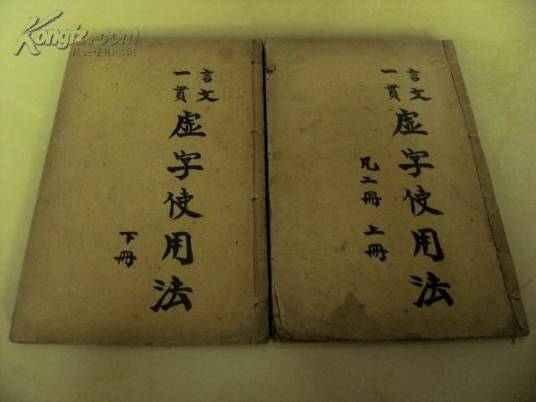 Kongfz.com
言文
一贯
虚字使用法
下冊
言文
一贯
虚字使用法
凡二冊 上冊